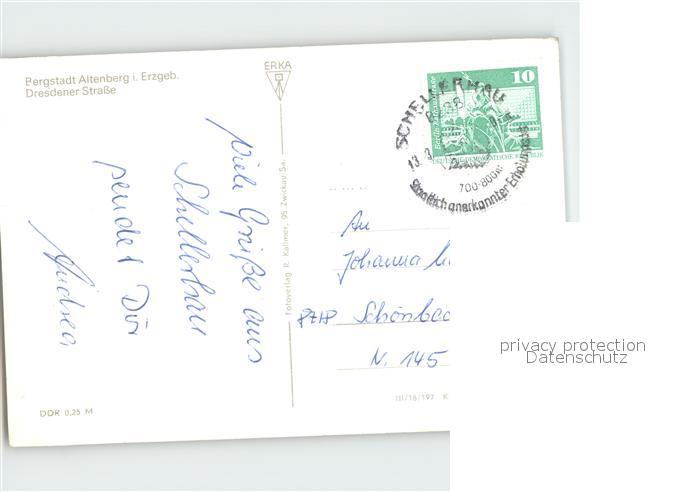 Bergstadt Altenberg i. Erzgeb.
Dresdener Straße
ERKA
10
SCHELLERHAU
700-800m
Staatlich anerkannter Erholungsort
Viele Grüße aus
Schellerhau
sendet Dir
Andrea
Fotoverlag R. Kallmer, 95 Zwickau/Sa.
An
Johanna
8718 Schönbac
N. 145
III/18/197 K
DDR 0,25 M
privacy protection
Datenschutz